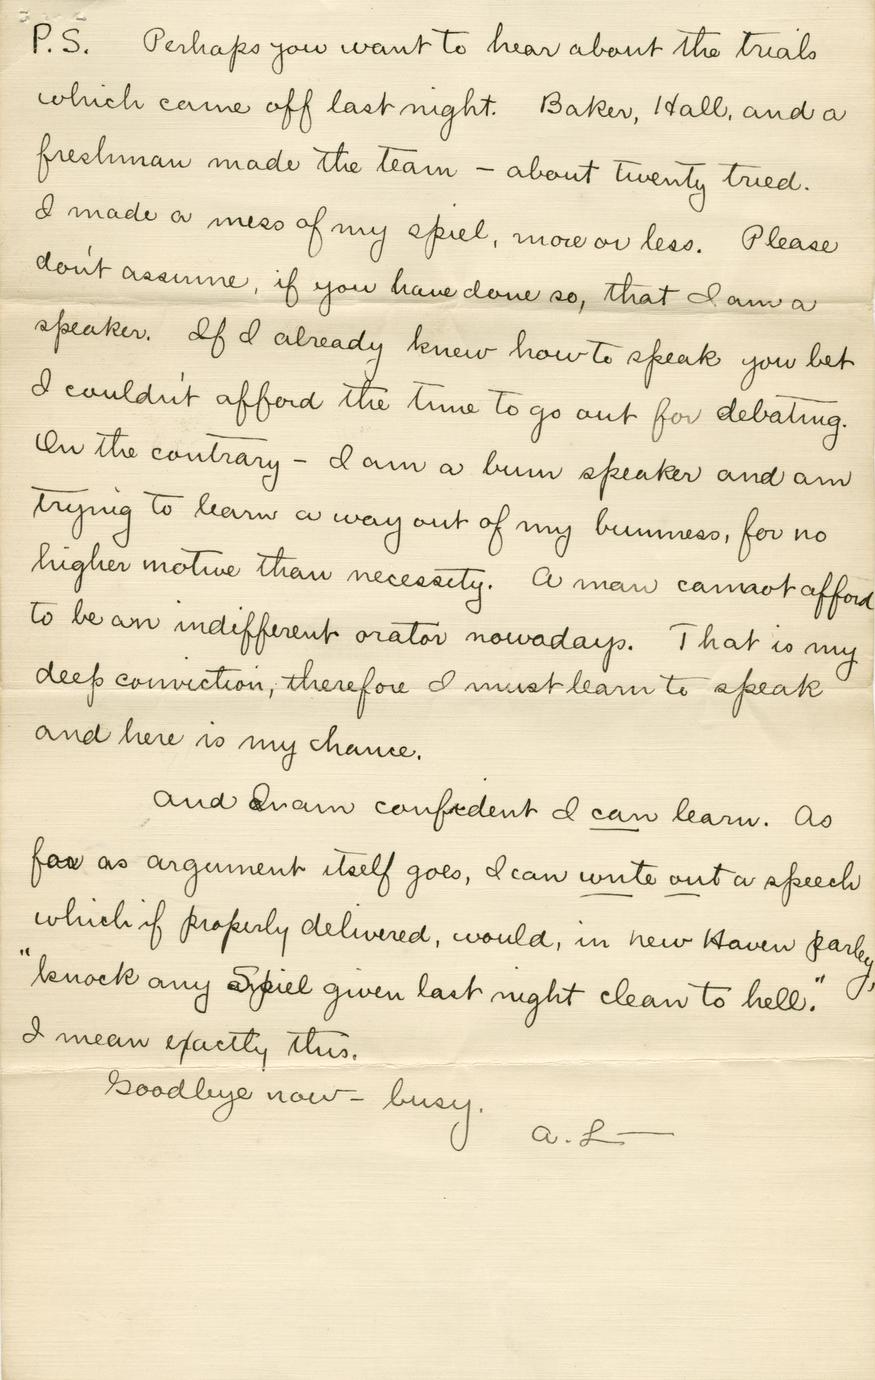 P.S. Perhaps you want to hear about the trials
which came off last night. Baker, Hall, and a
freshman made the team – about twenty tried.
I made a mess of my spiel, more or less. Please
don't assume, if you have done so, that I am a
speaker. If I already knew how to speak you bet
I couldn't afford the time to go out for debating.
On the contrary – I am a bum speaker and am
trying to learn a way out of my bumness, for no
higher motive than necessity. A man cannot afford
to be an indifferent orator nowadays. That is my
deep conviction, therefore I must learn to speak
and here is my chance.
And I am confident I can learn. As
far as argument itself goes, I can write out a speech
which if properly delivered, would, in New Haven parley,
"knock any spiel given last night clean to hell."
I mean exactly this.
Goodbye now – busy.
A. L—